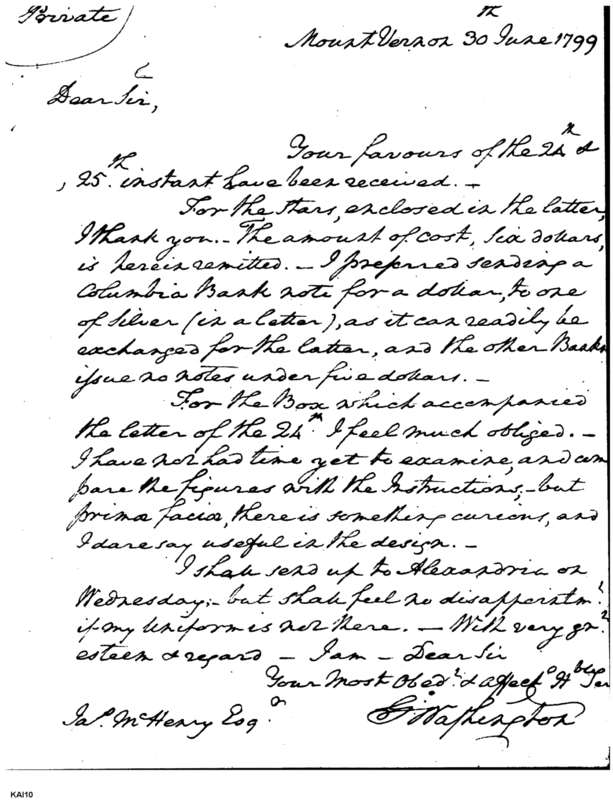 Private
Mount Vernon 30th June 1799
Dear Sir,
Your favours of the 24th &
25th instant have been received. –
For the Stars, enclosed in the latter,
I thank you. – The amount of cost, Six dollars,
is herein remitted. – I preferred sending a
Columbia Bank note for a dollar, to one
of Silver (in a letter), as it can readily be
exchanged for the latter, and the other Banks
issue no notes under five dollars. –
For the Box which accompanied
the letter of the 24th I feel much obliged. –
I have not had time yet to examine, and com
pare the figures with the Instructions, – but
primæ faciæ, there is something curious, and
I dare say useful in the design. –
I shall send up to Alexandria on
Wednesday; – but shall feel no disappointmt
if my Uniform is not there. – With very grt
esteem & regard – I am – Dear Sir
Your Most Obedt & Affecte Hble Ser
Jas. McHenry Esqr
Go Washington
KAI10